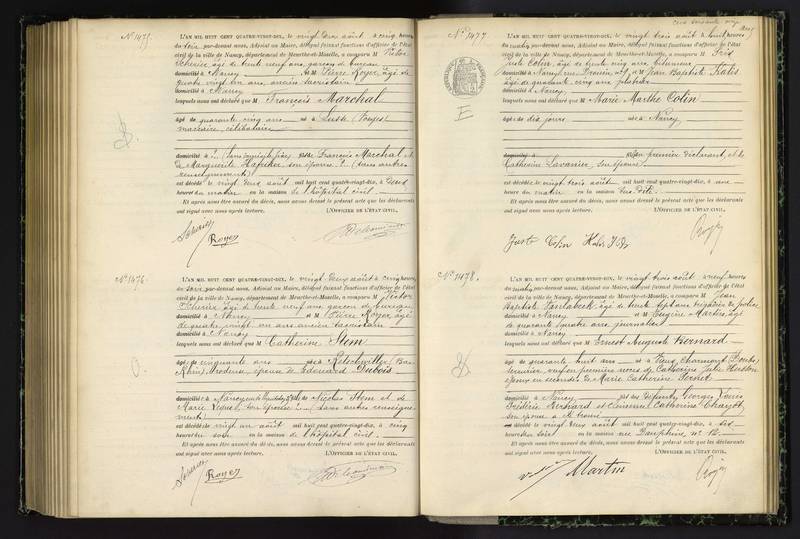 N° 1475.
L'AN MIL HUIT CENT QUATRE-VINGT-DIX, le vingt deux août à cinq heures
du soir par-devant nous, Adjoint au Maire, délégué faisant fonctions d'officier de l'état
civil de la ville de Nancy, département de Meurthe-et-Moselle, a comparu M Victor
âgé de trente neuf ans, garçon de bureau
domicilié à Nancy et M Pierre Royer, âgé de
quatre vingt un ans, ancien sacristain
domicilié à Nancy
lesquels nous ont déclaré que M François Marchal
âgé de quarante cinq ans né à (Vosges)
célibataire
domicilié à fils de François Marchal et
de Marguerite son épouse (sans autres
renseignements)
est décédé le vingt deux août mil huit cent quatre-vingt-dix, à deux
heures du matin en la maison de l'hôpital civil.
Et après nous être assuré du décès, nous avons dressé le présent acte que les déclarants
ont signé avec nous après lecture. L'OFFICIER DE L'ÉTAT CIVIL,
Royer
N° 1476.
L'AN MIL HUIT CENT QUATRE-VINGT-DIX, le vingt deux août à cinq heures
du soir, par-devant nous, Adjoint au Maire, délégué faisant fonctions d'officier de l'état
civil de la ville de Nancy, département de Meurthe-et-Moselle, a comparu M Victor
âgé de trente neuf ans, garçon de bureau
domicilié à Nancy et M Pierre Royer, âgé
de quatre vingt un ans ancien sacristain
domicilié à Nancy
lesquels nous ont déclaré que M Catherine Stem
âgé de cinquante ans né à Retschwiller (Bas
Rhin) brodeuse, épouse de Edouard Dubois
domicilié à Nancy de Nicolas Stem et de
Marie son épouse (sans autres renseigne-
ments)
est décédé le vingt un août mil huit cent quatre-vingt-dix, à cinq
heures du soir en la maison de l'hôpital civil.
Et après nous être assuré du décès, nous avons dressé le présent acte que les déclarants
ont signé avec nous après lecture. L'OFFICIER DE L'ÉTAT CIVIL,
Royer
N° 1477
L'AN MIL HUIT CENT QUATRE-VINGT-DIX, le vingt trois août à huit heures
du matin, par-devant nous, Adjoint au Maire, délégué faisant fonctions d'officier de l'état
civil de la ville de Nancy, département de Meurthe-et-Moselle, a comparu M
Juste Colin, âgé de trente cinq ans, bitumeur
domicilié à Nancy, rue 29, et M Jean Baptiste
âgé de quarante cinq ans, plâtrier
domicilié à Nancy
lesquels nous ont déclaré que M Marie Marthe Colin
âgé de dix jours né à Nancy
domicilié à du premier déclarant, et de
Catherine Lavanier, son épouse
est décédé le vingt trois août mil huit cent quatre-vingt-dix, à une
heure du matin en la maison
Et après nous être assuré du décès, nous avons dressé le présent acte que les déclarants
ont signé avec nous après lecture. L'OFFICIER DE L'ÉTAT CIVIL,
Juste Colin
N° 1478.
L'AN MIL HUIT CENT QUATRE-VINGT-DIX, le vingt trois août à neuf heures
du matin, par-devant nous, Adjoint au Maire, délégué faisant fonctions d'officier de l'état
civil de la ville de Nancy, département de Meurthe-et-Moselle, a comparu M Jean
Baptiste âgé de trente sept ans, brigadier de police
domicilié à Nancy et M Eugène Martin, âgé
de quarante quatre ans, journalier
domicilié à Nancy
lesquels nous ont déclaré que M Ernest Auguste Bernard
âgé de quarante huit ans né à Vieux Charmont (Doubs)
serrurier, veuf en premières noces de Catherine Julie
époux en secondes de Marie Catherine
domicilié à Nancy fils des défunts Georges Louis
Frédéric Bernard et Catherine
son épouse
est décédé le vingt deux août mil huit cent quatre-vingt-dix, à six
heures du soir en la maison rue Dauphine, n° 12.
Et après nous être assuré du décès, nous avons dressé le présent acte que les déclarants
ont signé avec nous après lecture. L'OFFICIER DE L'ÉTAT CIVIL,
Martin